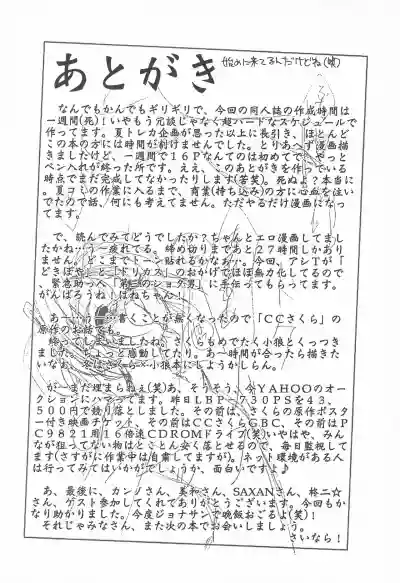 あとがき
始めに来てるんだけどね(笑)
なんでもかんでもギリギリで、今回の同人誌の作成時間は
一週間(死)!いやもう冗談じゃなく超ハードなスケジュールで
作ってます。夏トレカ企画が思った以上に長引き、ほとんど
この本の方には時間が割けませんでした。とりあへず漫画描
きましたけど、一週間で16Pなんてのは初めてで、やっと
ペン入れが終った所です。ええ、このあとがきを作っている
時点でまだ完成してなかったりします(苦笑)。死ぬよ?本当に
。夏コミの作業に入るまで、商業(持ち込み)の方に心血を注い
でたので話、何にも考えてません。ただやるだけ漫画になっ
てます。
で、読んでみてどうでしたか?ちゃんとエロ漫画してまし
たかね…う一疲れてる。締め切りまであと27時間しかあり
ません。どこまでトーン貼れるかなあ…。今回、アシTが「
どきぽや」と「ドリカス」のおかげでほぼ無力化してるので、
緊急助っ人「第三のショタ男」に手伝ってもらってます。
がんばろうね!ばねちゃん!
あー、前…書くことが無くなったので「CCさくら」の
原作のお話でも。
終ってしまいましたね。さくらもめでたく小狼とくっつき
ました。ちょっと感動してたり。あ〜時間が合ったら描きた
いなぁ。冬はさくら×小狼本にしようかしらん。
がーまだ埋まらねぇ(笑)あ、そうそう、今YAHOOのオー
クションにハマッてます。昨日LBP-730PSを43,
500円で競り落としました。その前は、さくらの原作ポスター
付き映画チケット、その前はCCさくらGBC、その前はP
C9821用16倍速CDROMドライブ(笑)いやはや、みん
なが狙ってない物はとことん安く落とせるので、毎日監視して
ます(さすがに作業中は自粛してますが)。ネット環境がある人
は行ってみてはいかがでしょうか、面白いですよ♪
あ、最後に、カンノさん、美和さん、SAXANさん、柊二☆
さん、ゲスト参加してくれてありがとうございます。今回もか
なり助かりました。今度ジョナサンで晩飯おごるよ(笑)!
それじゃみなさん、また次の本でお会いしましょう。
さいなら!